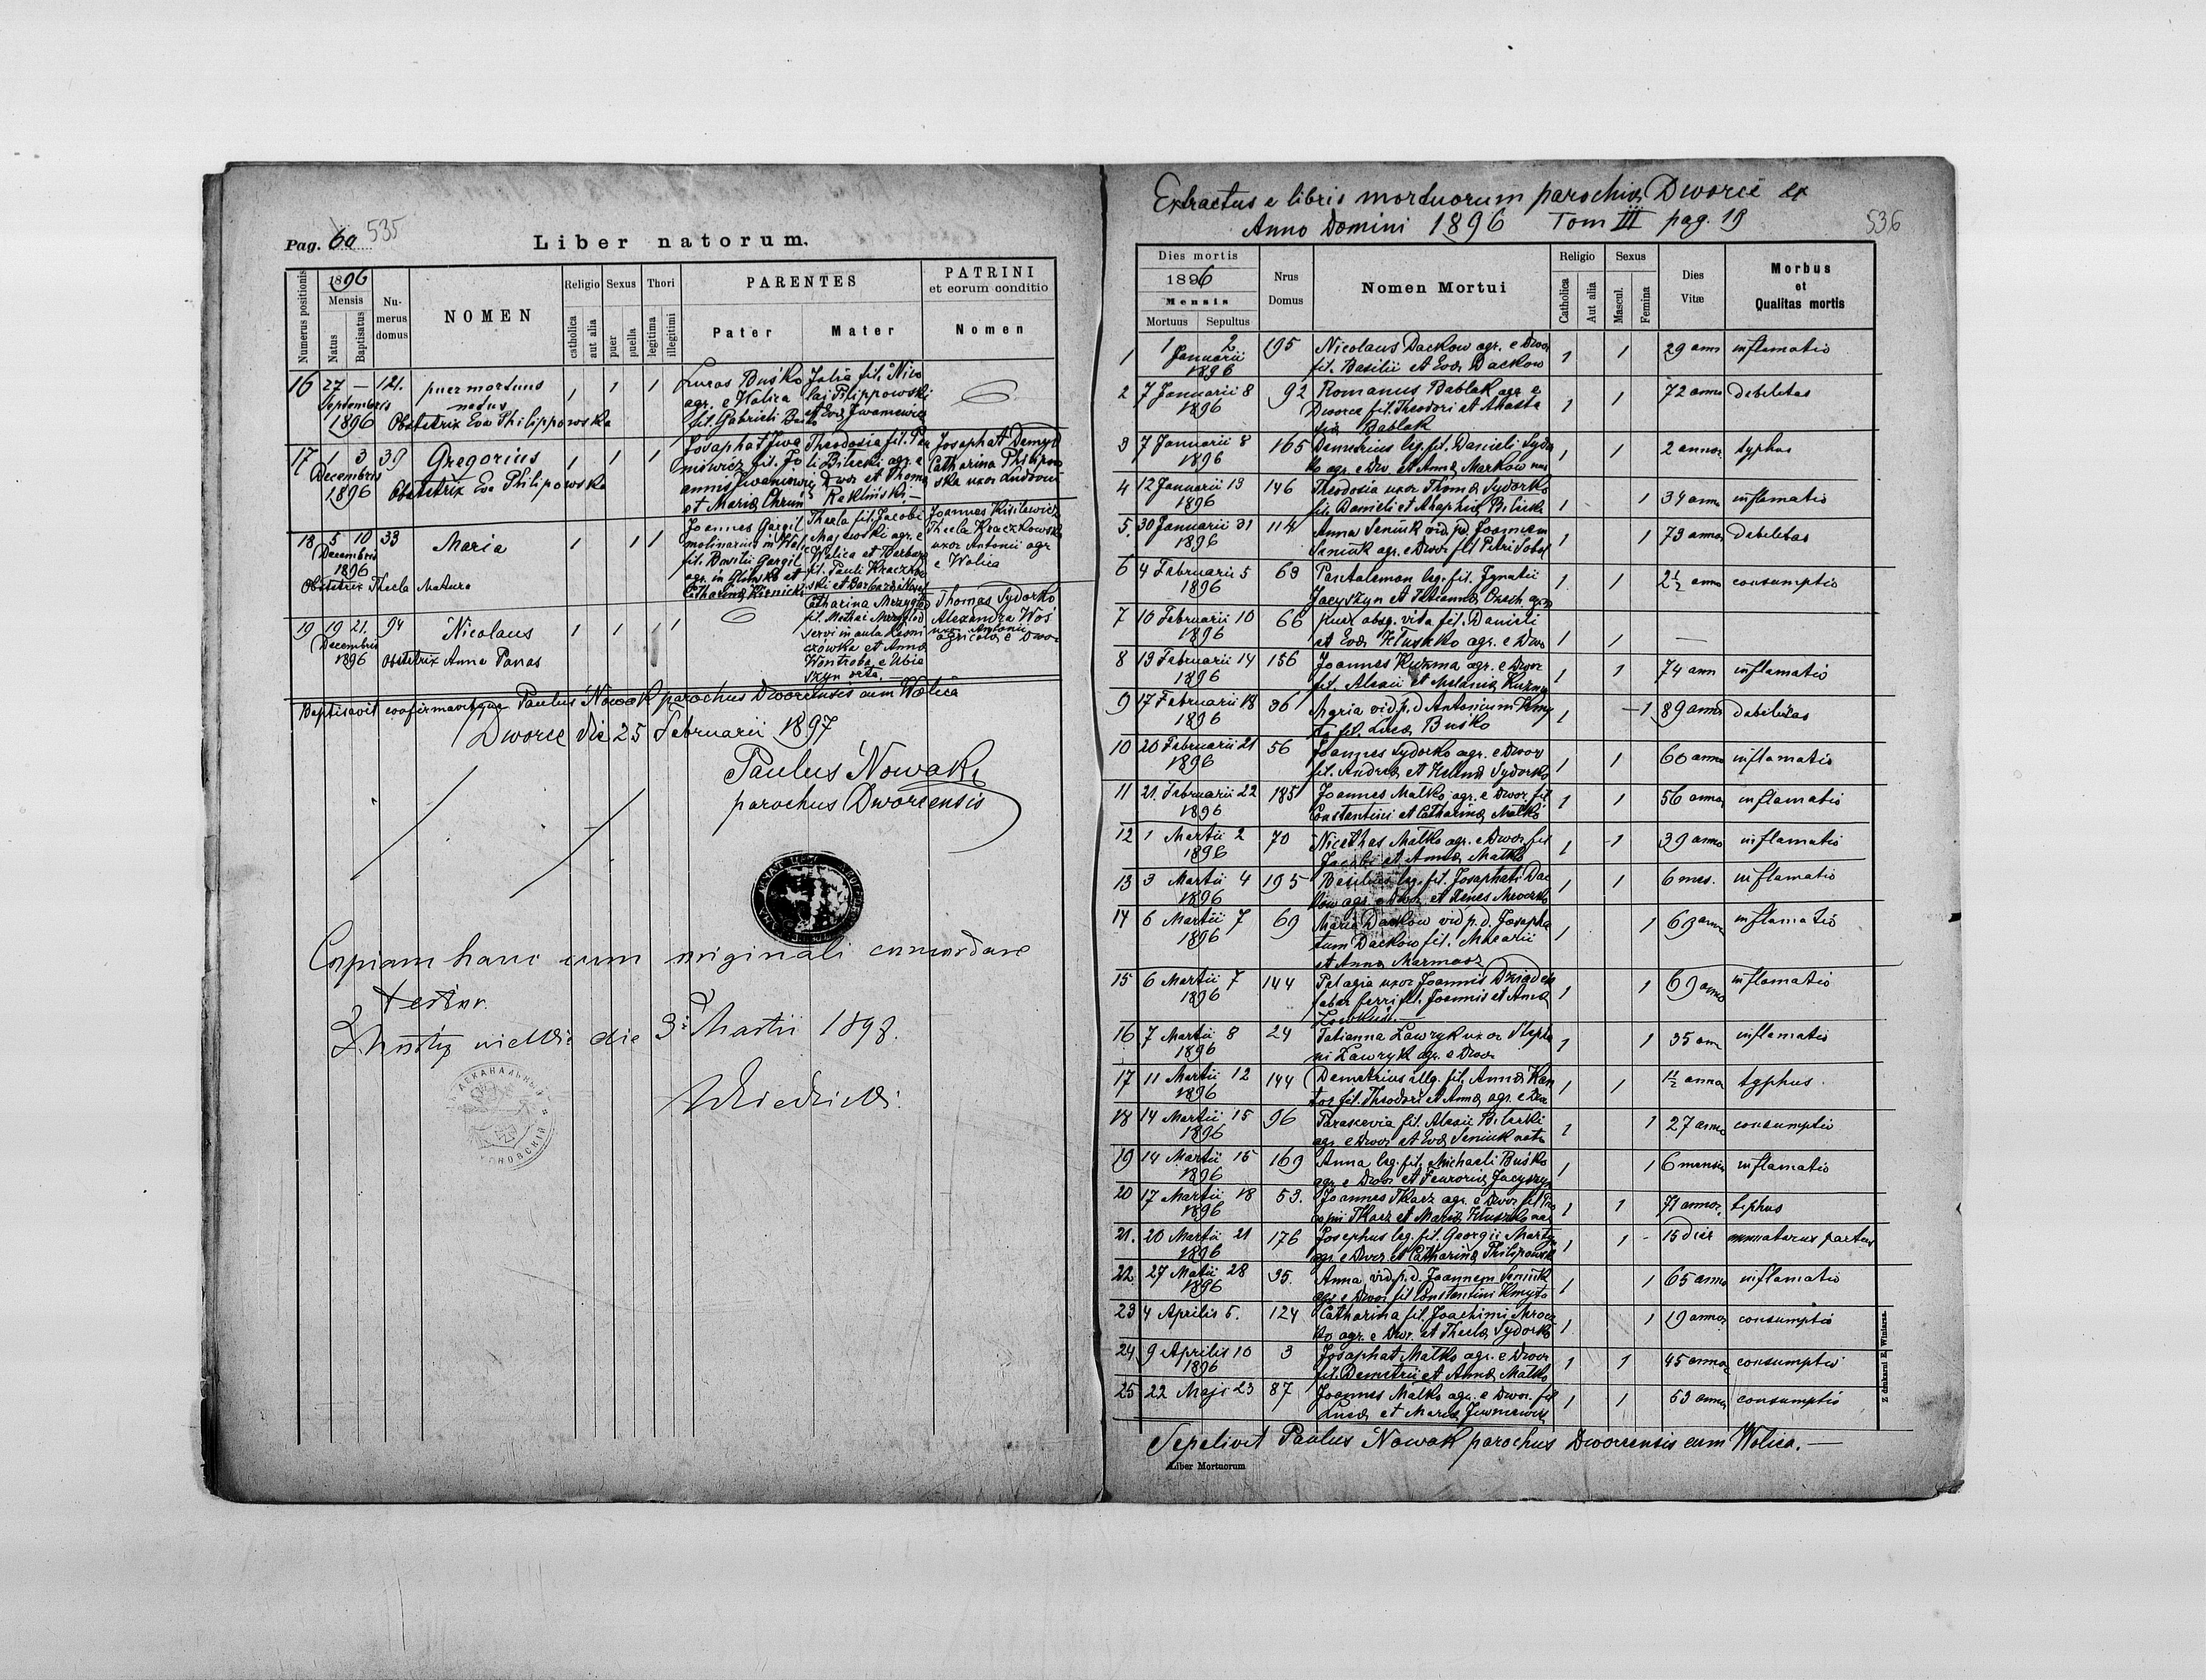 Pag. 60 535
Liber natorum.
Numerus positionis
1896
Mensis
Natus
Baptisatus
Numerus domus
NOMEN
Religio
catholica
aut alia
Sexus
puer
puella
Thori
legitima
illegitimi
PARENTES
Pater
Mater
PATRINI
et eorum conditio
Nomen
16 27 — 121. puer mortuus 1 1 1 Lucas Buśko Julia fil. Nico
Septembris natus agr. e Wolica lai Pilippowski
1896 Obstetrix Eva Philippowska fil. Gabrieli et Eva Iwaniewicz
17 1 3 39 Gregorius 1 1 1 Josaphat Iwa Theodosia fil. Pau Josaphat Demyd
Decembris niewicz fil. Jo li Bilecki agr. e Catharina Philipow
1896 Obstetrix Eva Philipowska annis Iwaniewicz Dwor et Thoma ska uxor
et Maria Chrun
18 5 10 33 Maria 1 1 1 Joannes Gargil Thecla fil. Jacobi Joannes Kisilewicz
Decembris molinarius in Wolica agr. e Thecla Kraczkowska
1896 fil. Basilii Gargil Wolica et Barbara uxor Antonii agr
Obstetrix Thecla Matura agr. in et fil. Pauli e Wolica
Catharina ski et Barbara
19 19 21. 94 Nicolaus 1 1 1 Catharina Thomas Sydorko
Decembris fil. Alexandra Woś
1896 Obstetrix Anna Panas servi in aula uxor Antonii
et Anna agricola e Dwor
orta.—
Baptisavit confirmavitque Paulus Nowak parochus Dworcensis cum Wolica
Dworce die 25 Februarii 1897
Paulus Nowak
parochus Dworcensis
Copiam hanc cum originali concordare
testor.
Mosty wielkie die 3 Martii 1898.
Extractus e libris mortuorum parochiæ Dworce ex
Anno Domini 1896 Tom III pag. 19 536
Dies mortis
1896
Mensis
Mortuus
Sepultus
Nrus
Domus
Nomen Mortui
Religio
Catholica
Aut alia
Sexus
Mascul.
Femina
Dies
Vitæ
Morbus
et
Qualitas mortis
1 1 2 195 Nicolaus Dackow agr. e Dwor 1 1 29 ann inflamatio
Januarii fil. Basilii et Eva Dackow
1896
2 7 Januarii 8 92 Romanus Bablak agr e 1 1 72 anno debilitas
1896 Dworce fil. Theodori et Anasta
sia Bablak
3 7 Januarii 8 165 Demetrius leg. fil. Danieli Sydo 1 1 2 annor typhus
1896 ko agr. e Dw. et Anna Markow nat
4 12 Januarii 13 146 Theodosia uxor Thoma Sydorko 1 1 34 ann inflamatio
1896 fil. Danieli et Ahaphia
5. 30 Januarii 31 114 Anna Seniuk vid. p. d. Joannem 1 1 73 anno debilitas
1896 Seniuk agr. e Dwor fil Petri
6 4 Februarii 5 63 Pantalemon leg. fil. Ignatii 1 1 2½ ann consumptio
1896 Jacyszyn et Tatianna Czech agr
7 10 Februarii 10 66 puer absq. vita fil. Danieli 1 1 —
1896 et Eva agr. e Dwo
8 13 Februarii 14 156 Joannes Kuzma agr. e Dwor 1 1 74 ann inflamatio
1896 fil. Alexii et Melania Kuzma
9 17 Februarii 18 36 Maria vid. p. d Antonium Kmy 1 1 89 anno debilitas
1896 to fil. Luca Buśko
10 20 Februarii 21 56 Joannes Sydorko agr. e Dwor 1 1 60 anno inflamatio
1896 fil. Andrea et Helena Sydorko
11 21. Februarii 22 185 Joannes Malko agr. e Dwor fil 1 1 56 anno inflamatio
1896 Constantini et Catharina Malko
12 1 Martii 2 70 Nicethas Malko agr. e Dwor fil 1 1 39 anno inflamatio
1896 Jacobi et Anna Malko
13 3 Martii 4 195 Basilius leg. fil. Josaphati Dac 1 1 6 mes. inflamatio
1896 kow agr. e Dwor et
14 6 Martii 7 69 Maria Dackow vid p. d. Josapha 1 1 69 ann inflamatio
1896 tum Dackow fil. Macarii
et Anna Marmasz
15 6 Martii 7 144 Pelagia uxor Joannis 1 1 69 anno inflamatio
1896 faber ferri fil. Joannis et Anna
16 7 Martii 8 24 Tatianna Lawryk uxor Stepha 1 1 35 ann inflamatio
1896 ni Lawryk agr. e Dwor
17 11 Martii 12 144 Demetrius illg. fil. Anna Kan 1 1 1½ anno typhus
1896 tor fil. Theodori et Anna agr. e Dwor
18 14 Martii 15 96 Parascevia fil. Alexii Bilecki 1 1 27 anno consumptio
1896 agr. e Dwor et Eva Seniuk nata
19 14 Martii 15 169 Anna leg. fil. Michaeli Buśko 1 1 6 mensis inflamatio
1896 agr. e Dwor et Jacyszyn
20 17 Martii 18 53. Joannes Tkacz agr. e Dwor fil Pro 1 1 71 annor. tiphus
1896 copii Tkacz et Maria nat
21. 20 Martii 21 176 Josephus leg. fil. Georgii Marty 1 1 15 dies partus
1896 agr. e Dwor et Catharina Philipowsk
22. 27 Matii 28 35. Anna vid. p. d. Joannem Seniuk 1 1 65 anno inflamatio
1896 agr. e Dwor fil Constantini Kmyto
23 4 Aprilis 5. 124 Catharina fil. Joachimi 1 1 19 annor consumptio
ko agr. e Dwr. et Thecla Sydorko
24 9 Aprilis 10 3 Josaphat Malko agr. e Dwor 1 1 45 anno consumptio
1896 fil. Demetrii et Anna Malko
25 22 Maji 23 87 Joannes Malko agr. e Dwor. fil 1 1 53 anno consumptio
Luca et Maria
Sepelivit Paulus Nowak parochus Dworcensis cum Wolica.—
Liber Mortuorum
Z drukarni E. Winiarza.